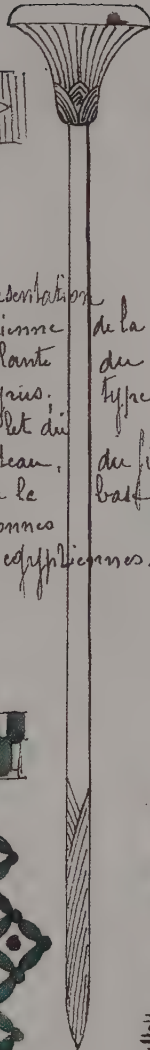 esentation
ienne de la
lante du
yrus, type
let du
eau, du fu
le base
onnes
egyptiennes.